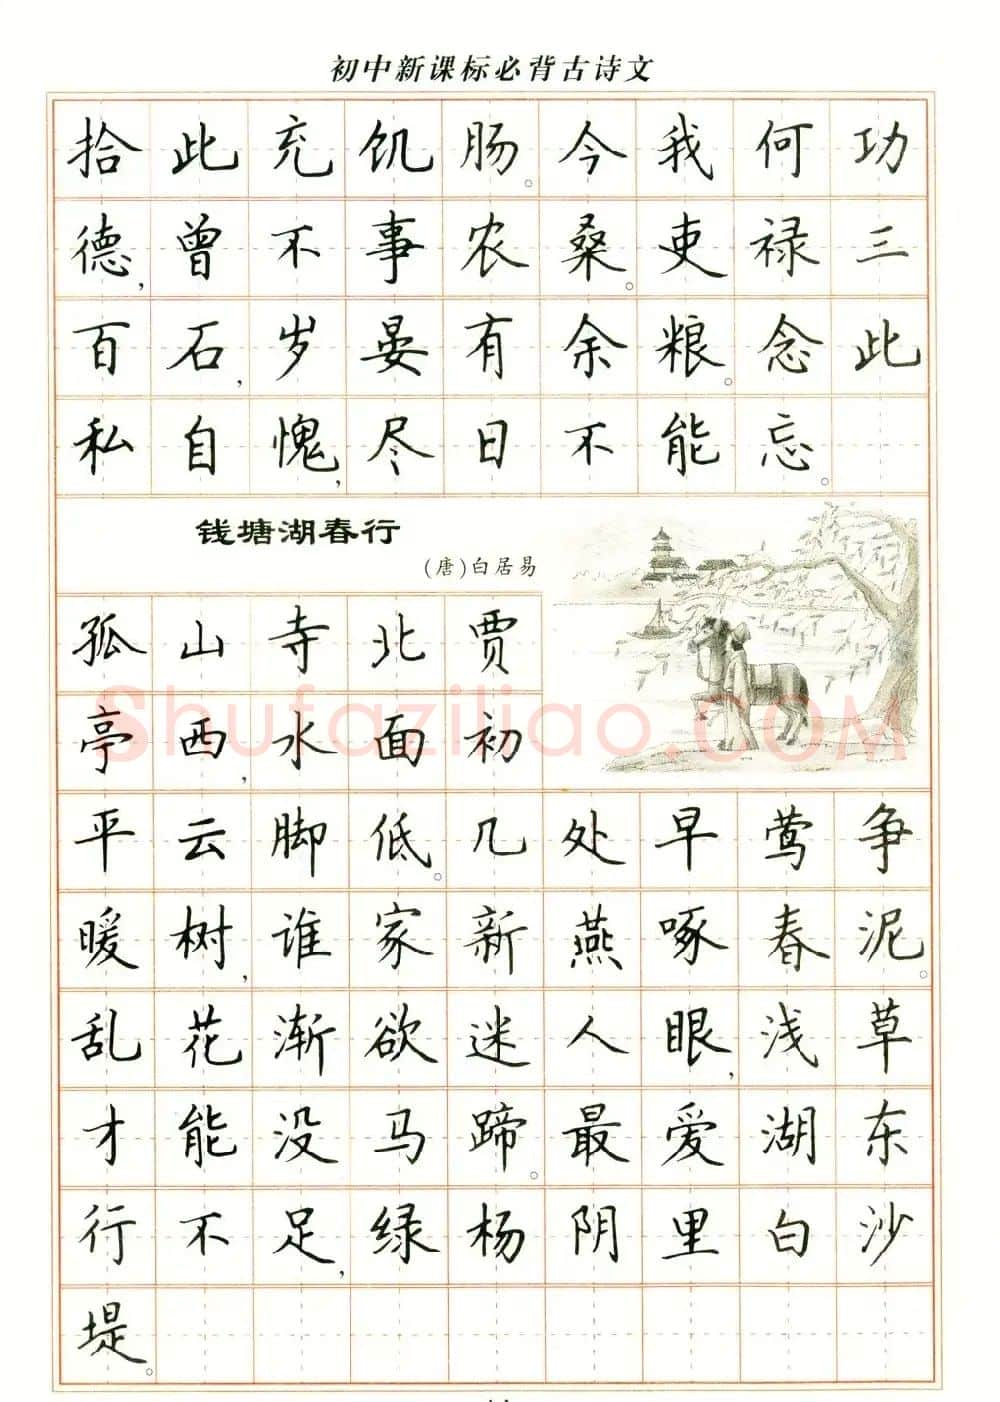 初中新课标必背古诗文
拾此充饥肠。今我何功
德,曾不事农桑。吏禄三
百石,岁晏有余粮。念此
私自愧,尽日不能忘。
钱塘湖春行
(唐)白居易
孤山寺北贾
亭西,水面初
平云脚低。几处早莺争
暖树,谁家新燕啄春泥。
乱花渐欲迷人眼,浅草
才能没马蹄。最爱湖东
行不足,绿杨阴里白沙
堤。
Shufaziliao.COM